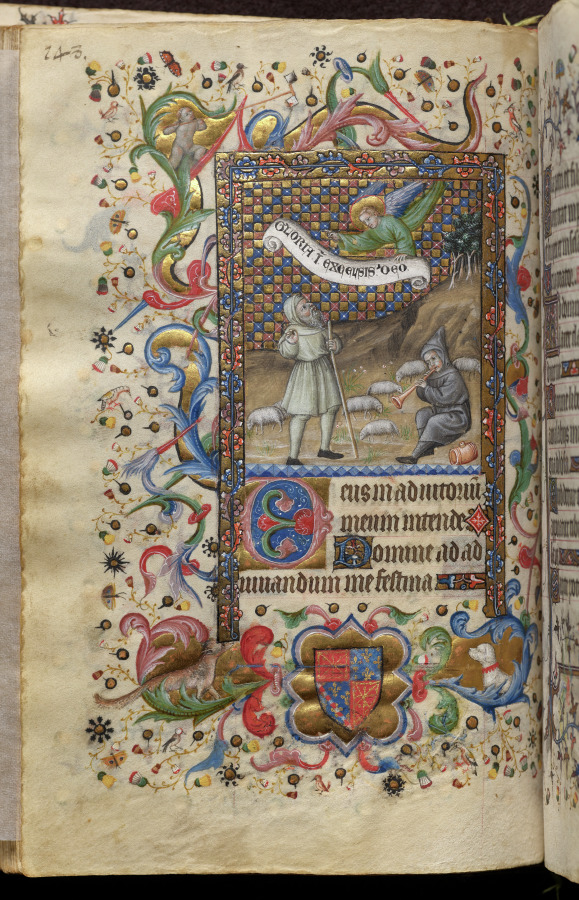 243.
GLORIA ī EXCELSIS DEO
Deus in adiutoriū
meum intende
Domine ad ad
iuuandum me festina